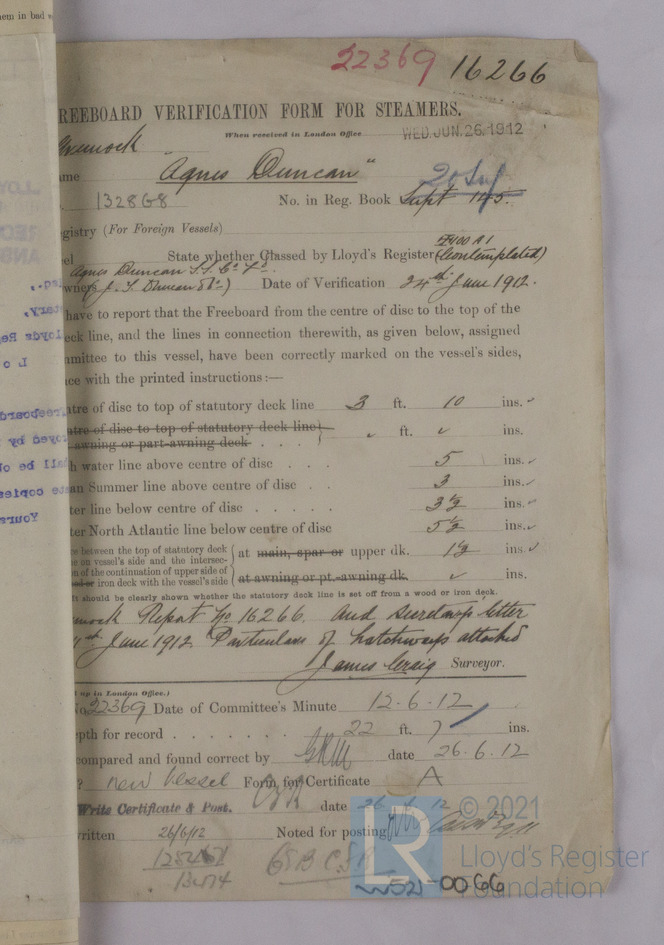 em in bad
22369 16266
REEBOARD VERIFICATION FORM FOR STEAMERS.
When received in London Office WED. JUN. 26. 1912
eenock
me "Agnes Duncan"
132868 No. in Reg. Book Supt 145.
gistry (For Foreign Vessels)
el State whether Classed by Lloyd's Register (Contemplated)
Agnes Duncan S.S. Co Ld
wners J. T. Duncan & Co) Date of Verification 24th June 1912.
have to report that the Freeboard from the centre of disc to the top of the
eck line, and the lines in connection therewith, as given below, assigned
mmittee to this vessel, have been correctly marked on the vessel's sides,
ce with the printed instructions:—
tre of disc to top of statutory deck line 3 ft. 10 ins.
tre of disc to top of statutory deck line
awning or part-awning deck . . . ft. ins.
h water line above centre of disc . . . 5 ins.
an Summer line above centre of disc . . 3 ins.
ter line below centre of disc . . . . . 3½ ins.
ter North Atlantic line below centre of disc 5½ ins.
e between the top of statutory deck
e on vessel's side and the intersec- at main, spar or upper dk. 1½ ins.
n of the continuation of upper side of
or iron deck with the vessel's side at awning or pt.-awning dk. ins.
It should be clearly shewn whether the statutory deck line is set off from a wood or iron deck.
nock Report No 16266. and Secretary's letter
June 1912 Particulars of hatchways attached
James Craig Surveyor.
up in London Office.)
No. 22369 Date of Committee's Minute 12.6.12
epth for record . . . . . . . 22 ft. 7 ins.
compared and found correct by date 26.6.12
? new Vessel Form for Certificate A
Write Certificate & Post. date 26 6 12
ritten 26/6/12 Noted for posting
© 2021
LR Lloyd's Register
Foundation
W521-0066